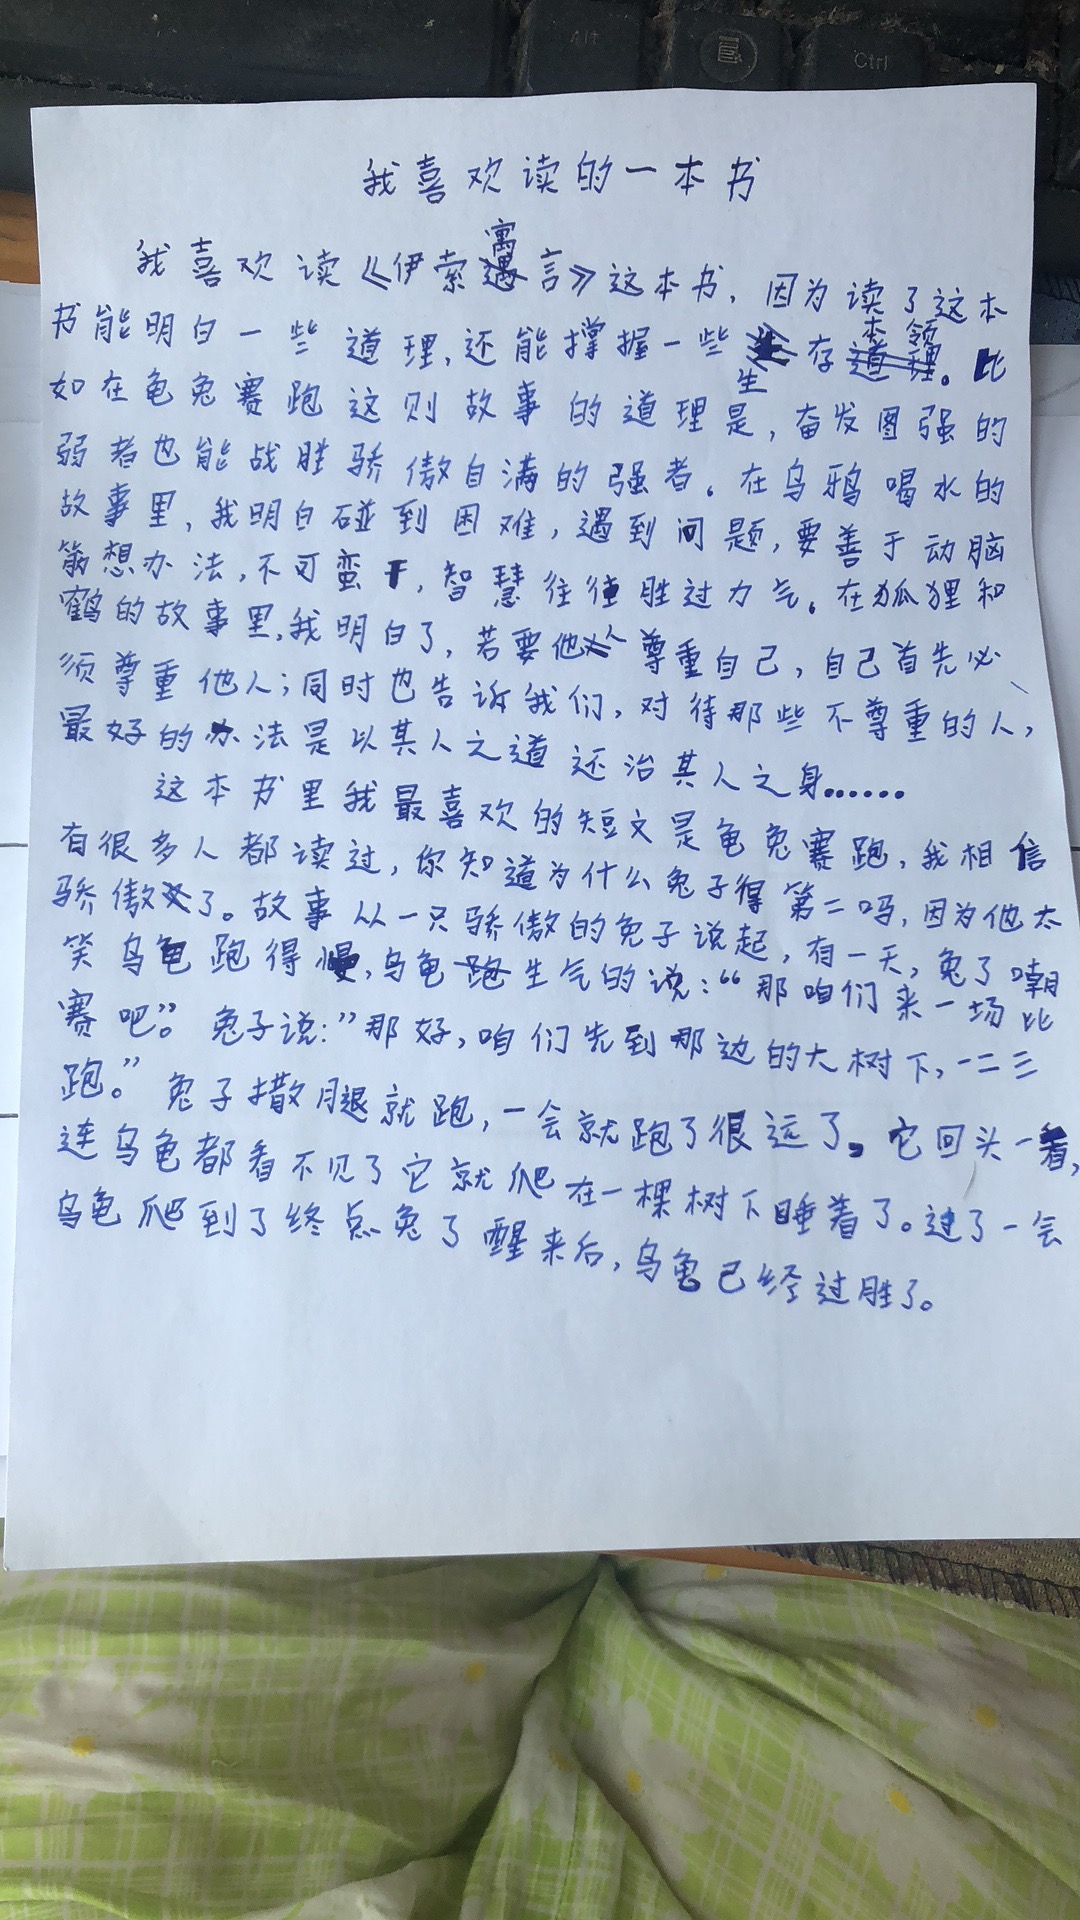 Alt
Ctrl
我喜欢读的一本书
我喜欢读《伊索寓言》这本书，因为读了这本
书能明白一些道理，还能撑握一些生存本领。比
如在龟兔赛跑这则故事的道理是，奋发图强的
弱者也能战胜骄傲自满的强者。在乌鸦喝水的
故事里，我明白碰到困难，遇到问题，要善于动脑
筋想办法，不可蛮干，智慧往往胜过力气。在狐狸和
鹤的故事里，我明白了，若要他人尊重自己，自己首先必
须尊重他人；同时也告诉我们，对待那些不尊重的人，
最好的办法是以其人之道还治其人之身……
这本书里我最喜欢的短文是龟兔赛跑，我相信
有很多人都读过，你知道为什么兔子得第二吗，因为他太
骄傲了。故事从一只骄傲的兔子说起，有一天，兔了嘲
笑乌龟跑得慢，乌龟生气的说：“那咱们来一场比
赛吧”。兔子说：”那好，咱们先到那边的大树下，一二三
跑。”兔子撒腿就跑，一会就跑了很远了。它回头一看，
连乌龟都看不见了它就爬在一棵树下睡着了。过了一会
乌龟爬到了终点兔了醒来后，乌龟已经过胜了。